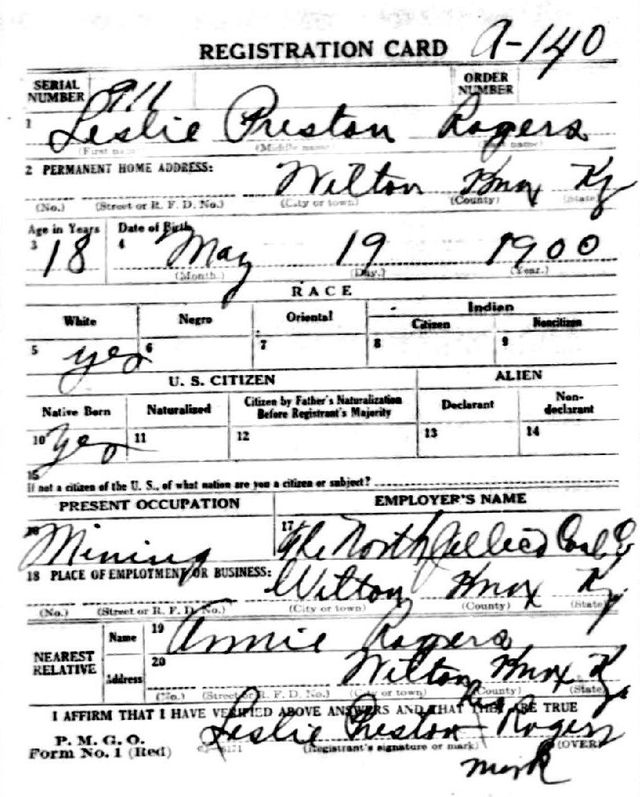 REGISTRATION CARD A-140
SERIAL NUMBER 911 ORDER NUMBER
1 Leslie Preston Rogers
(First name) (Middle name) (Last name)
2 PERMANENT HOME ADDRESS:
Wilton Knox Ky
(No.) (Street or R. F. D. No.) (City or town) (County) (State)
Age in Years Date of Birth
3 18 4 May 19 1900
(Month.) (Day.) (Year.)
RACE
White Negro Oriental Indian
Citizen Noncitizen
5 yes 6 7 8 9
U. S. CITIZEN ALIEN
Native Born Naturalized Citizen by Father's Naturalization Before Registrant's Majority Declarant Non-declarant
10 Yes 11 12 13 14
15
If not a citizen of the U. S., of what nation are you a citizen or subject?
PRESENT OCCUPATION EMPLOYER'S NAME
16 Mining 17 The North Jellico Coal Co
18 PLACE OF EMPLOYMENT OR BUSINESS:
Wilton Knox Ky
(No.) (Street or R. F. D. No.) (City or town) (County) (State)
NEAREST RELATIVE
Name 19 Annie Rogers
Address 20 Wilton Knox Ky
(No.) (Street or R. F. D. No.) (City or town) (County) (State)
I AFFIRM THAT I HAVE VERIFIED ABOVE ANSWERS AND THAT THEY ARE TRUE
P. M. G. O.
Form No. 1 (Red) Leslie Preston Rogers
(Registrant's signature or mark) (OVER)
mark